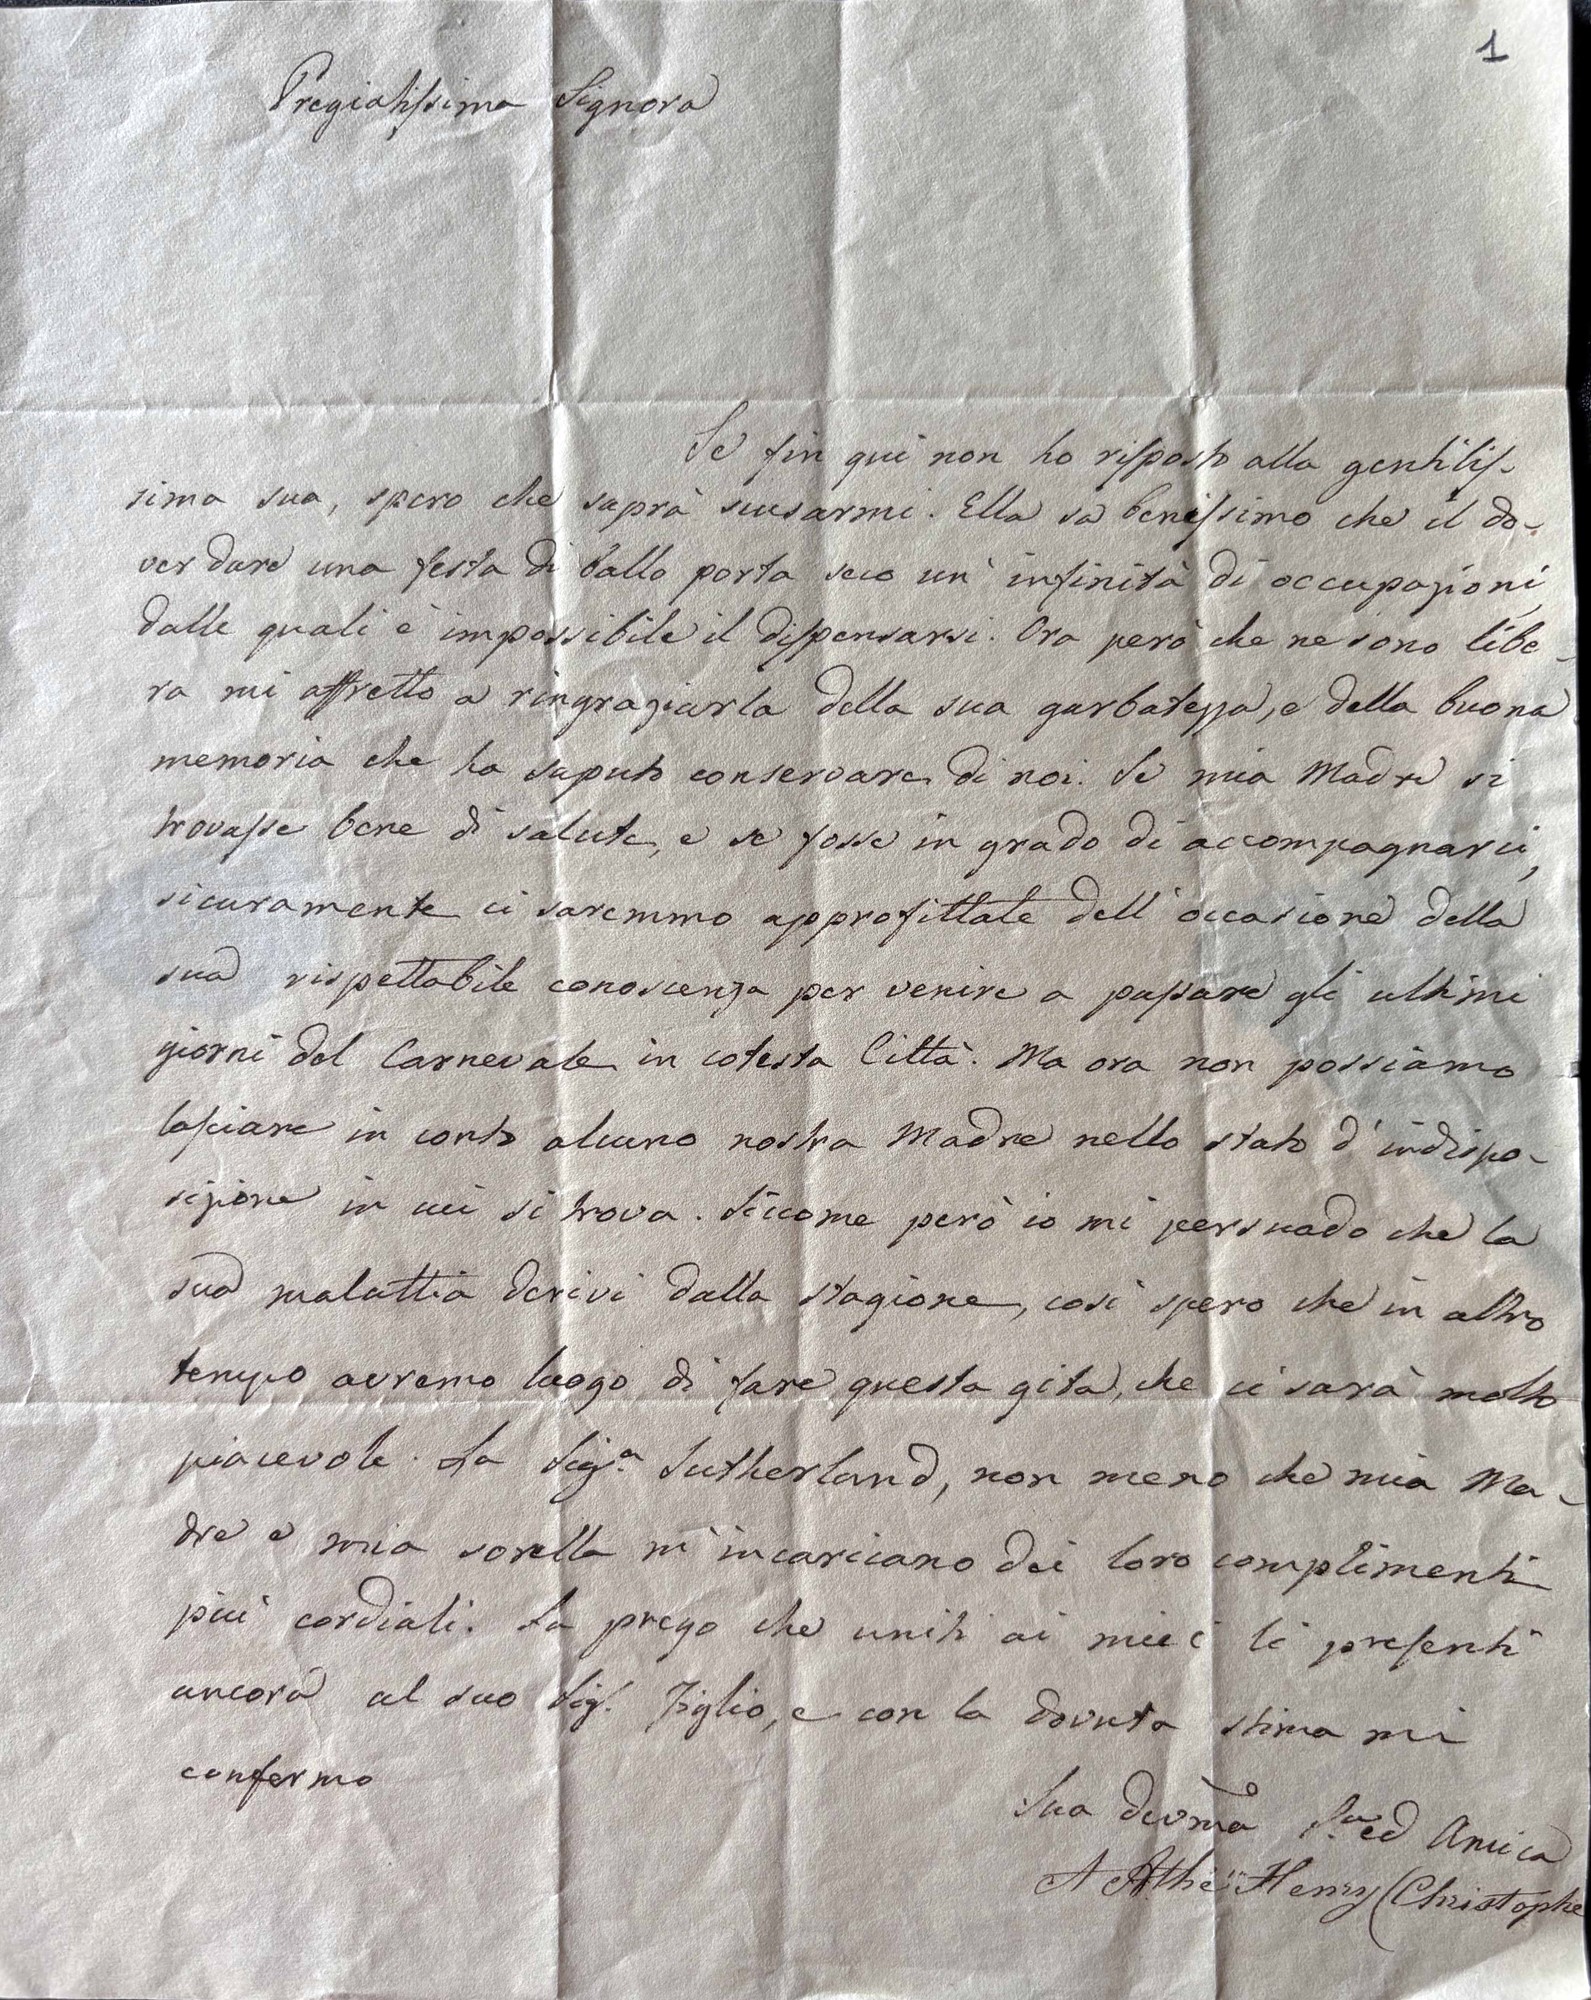 1
Pregiatissima Signora
Se fin qui non ho risposto alla gentilis-
sima sua, spero che saprà scusarmi. Ella sa benissimo che il do-
ver dare una festa di ballo porta seco un' infinità di occupazioni
dalle quali è impossibile il dispensarsi. Ora però che ne sono libe-
ra mi affretto a ringraziarla della sua garbatezza, e della buona
memoria che ha saputo conservare di noi. Se mia Madre si
trovasse bene di salute, e se fosse in grado di accompagnarci,
sicuramente ci saremmo approfittate dell' occasione della
sua rispettabile conoscenza per venire a passare gli ultimi
giorni del Carnevale in cotesta Città. Ma ora non possiamo
lasciare in conto alcuno nostra Madre nello stato d' indispo-
sizione in cui si trova. Siccome però io mi persuado che la
sua malattia derivi dalla stagione, così spero che in altro
tempo avremo luogo di fare questa gita, che ci sarà molto
piacevole. La Sig.a Sutherland, non meno che mia Ma-
dre e mia sorella m' incaricano dei loro complimenti
più cordiali. La prego che uniti ai miei li presenti
ancora al suo Sig. Figlio, e con la dovuta stima mi
confermo
Sua devma S.a ed Amica
A Athé Henry Christophe